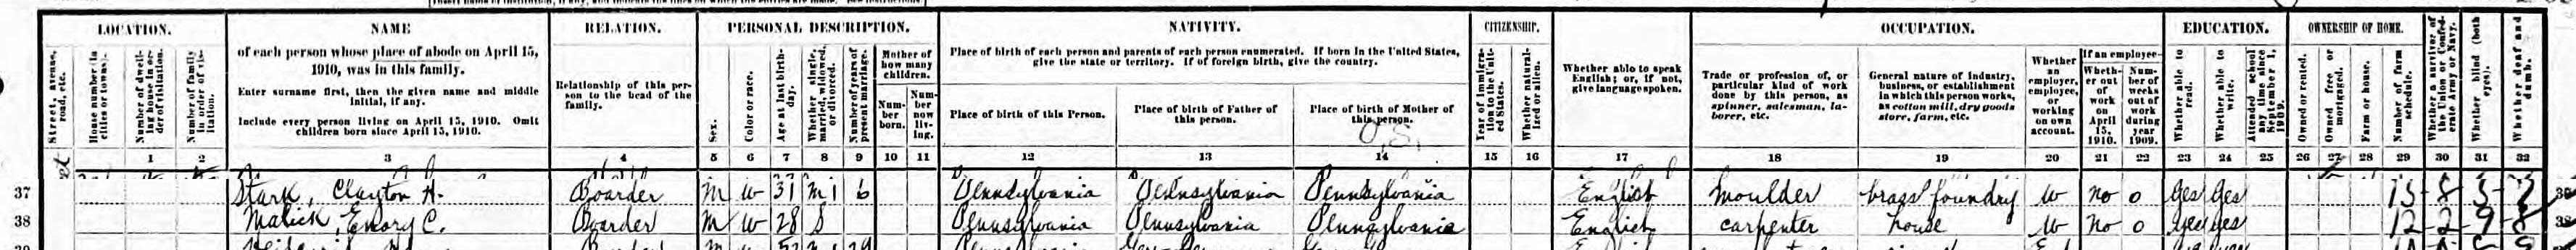 LOCATION. NAME RELATION. PERSONAL DESCRIPTION. NATIVITY. CITIZENSHIP. OCCUPATION. EDUCATION. OWNERSHIP OF HOME.
Street, avenue, road, etc.
House number (in cities or towns).
Number of dwelling house in order of visitation.
Number of family in order of visitation.
of each person whose place of abode on April 15, 1910, was in this family.
Enter surname first, then the given name and middle initial, if any.
Include every person living on April 15, 1910. Omit children born since April 15, 1910.
Relationship of this person to the head of the family.
Sex.
Color or race.
Age at last birthday.
Whether single, married, widowed, or divorced.
Number of years of present marriage.
Mother of how many children.
Number born.
Number now living.
Place of birth of each person and parents of each person enumerated. If born in the United States, give the state or territory. If of foreign birth, give the country.
Place of birth of this Person.
Place of birth of Father of this person.
Place of birth of Mother of this person.
U.S.
Year of immigration to the United States.
Whether naturalized or alien.
Whether able to speak English; or, if not, give language spoken.
Trade or profession of, or particular kind of work done by this person, as spinner, salesman, laborer, etc.
General nature of industry, business, or establishment in which this person works, as cotton mill, dry goods store, farm, etc.
Whether an employer, employee, or working on own account.
If an employee—
Whether out of work on April 15, 1910.
Number of weeks out of work during year 1909.
Whether able to read.
Whether able to write.
Attended school any time since September 1, 1909.
Owned or rented.
Owned free or mortgaged.
Farm or house.
Number of farm schedule.
Whether a survivor of the Union or Confederate Army or Navy.
Whether blind (both eyes).
Whether deaf and dumb.
1 2 3 4 5 6 7 8 9 10 11 12 13 14 15 16 17 18 19 20 21 22 23 24 25 26 27 28 29 30 31 32
37 Stark, Clayton H. Boarder M W 31 M1 6 Pennsylvania Pennsylvania Pennsylvania English moulder brass foundry W no 0 yes yes
38 Malick, Emory C. Boarder M W 28 S Pennsylvania Pennsylvania Pennsylvania English carpenter house W no 0 yes yes 12-2 9-8 38